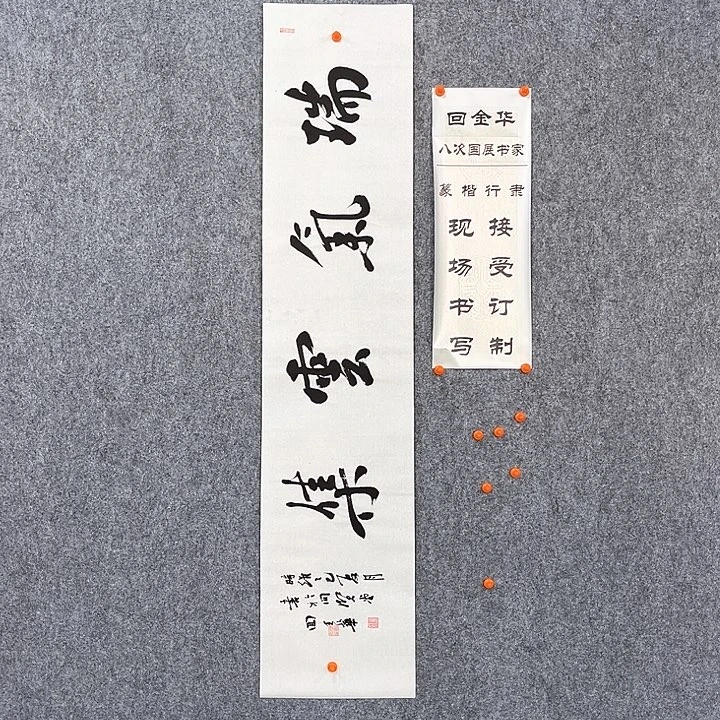 瑞氣雲集
回金华
八次国展书家
篆楷行隶
现场书写
接受订制